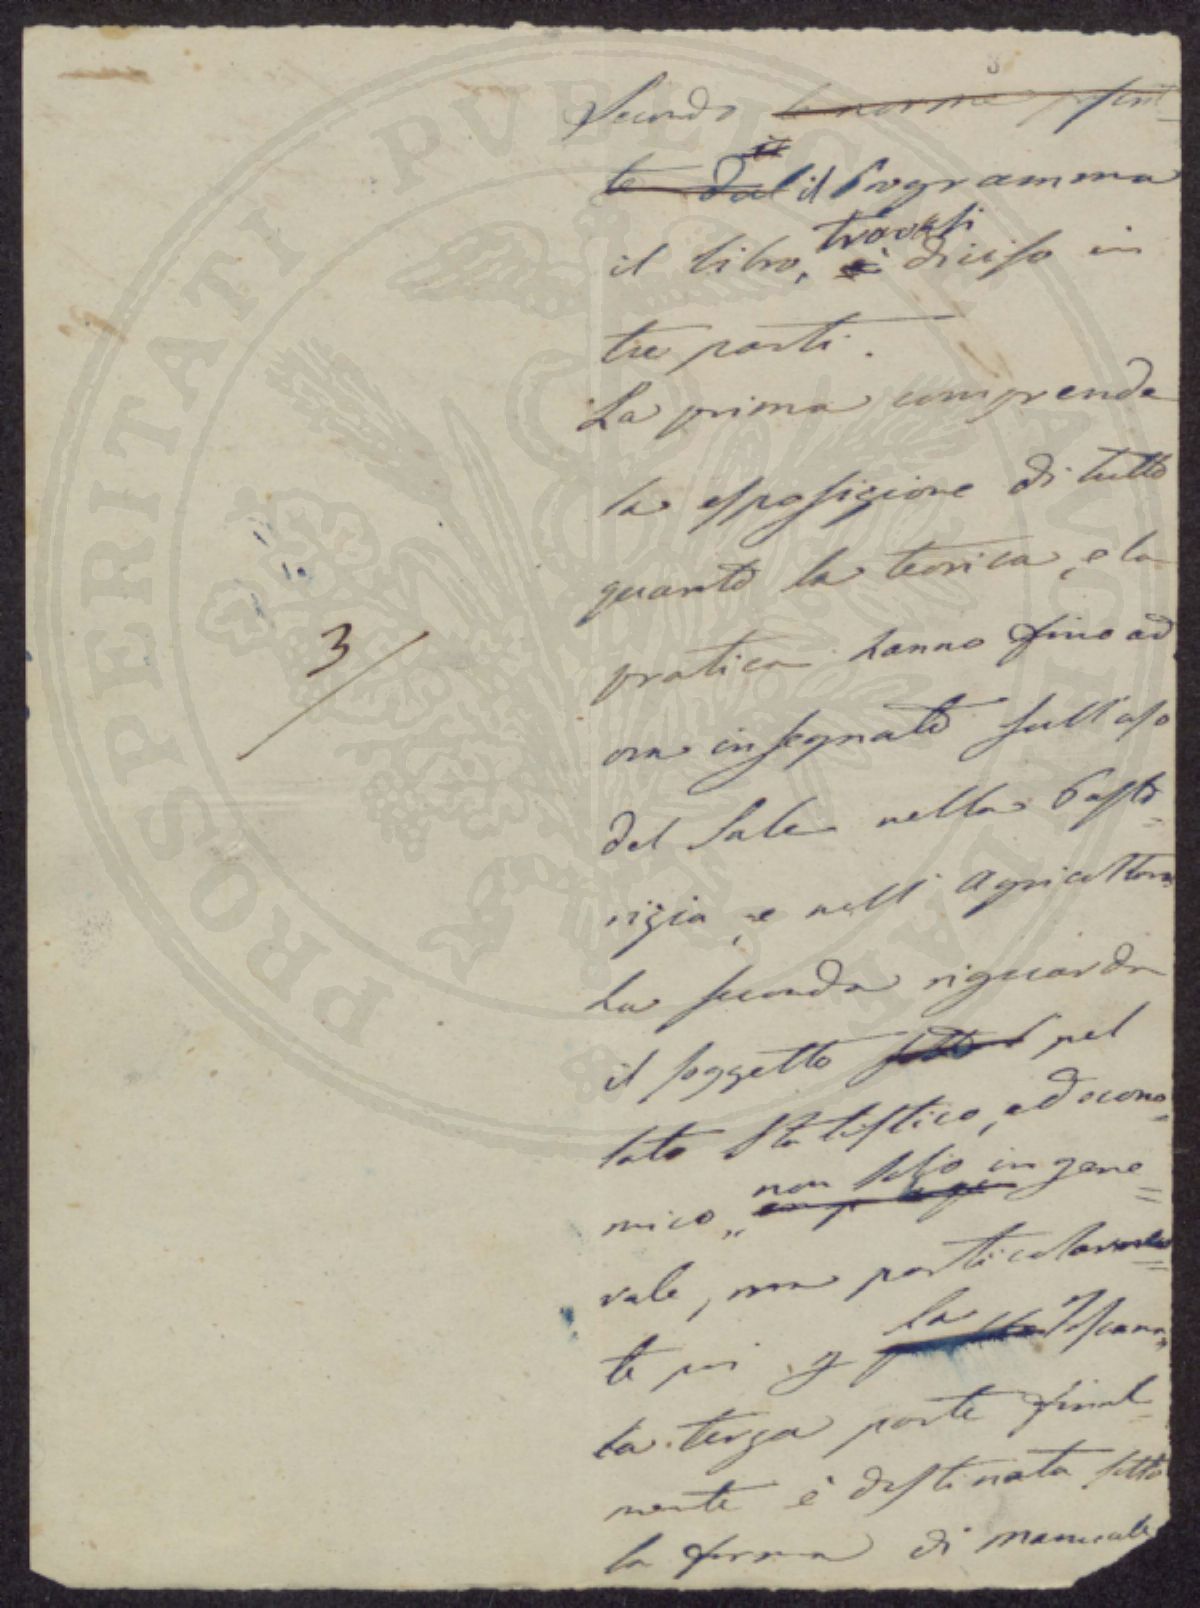 Secondo le norme prescrit-
te dal il Programma
il libro, trovasi è diviso in
tre parti.
La prima comprende
la esposizione di tutto
quanto la teorica, e la
pratica hanno fino ad
ora insegnato sull'uso
del Sale nella Pasto=
rizia, e nell'Agricoltura
La seconda riguarda
il soggetto sotto pel
lato Statistico, ed econo=
mico, non solo in gene=
rale, ma particolarmen=
te poi p la Toscana,
la terza parte final-
mente è destinata sotto
la forma di Manuale
3/
PROSPERITATI PVBLICAE AVGENDAE